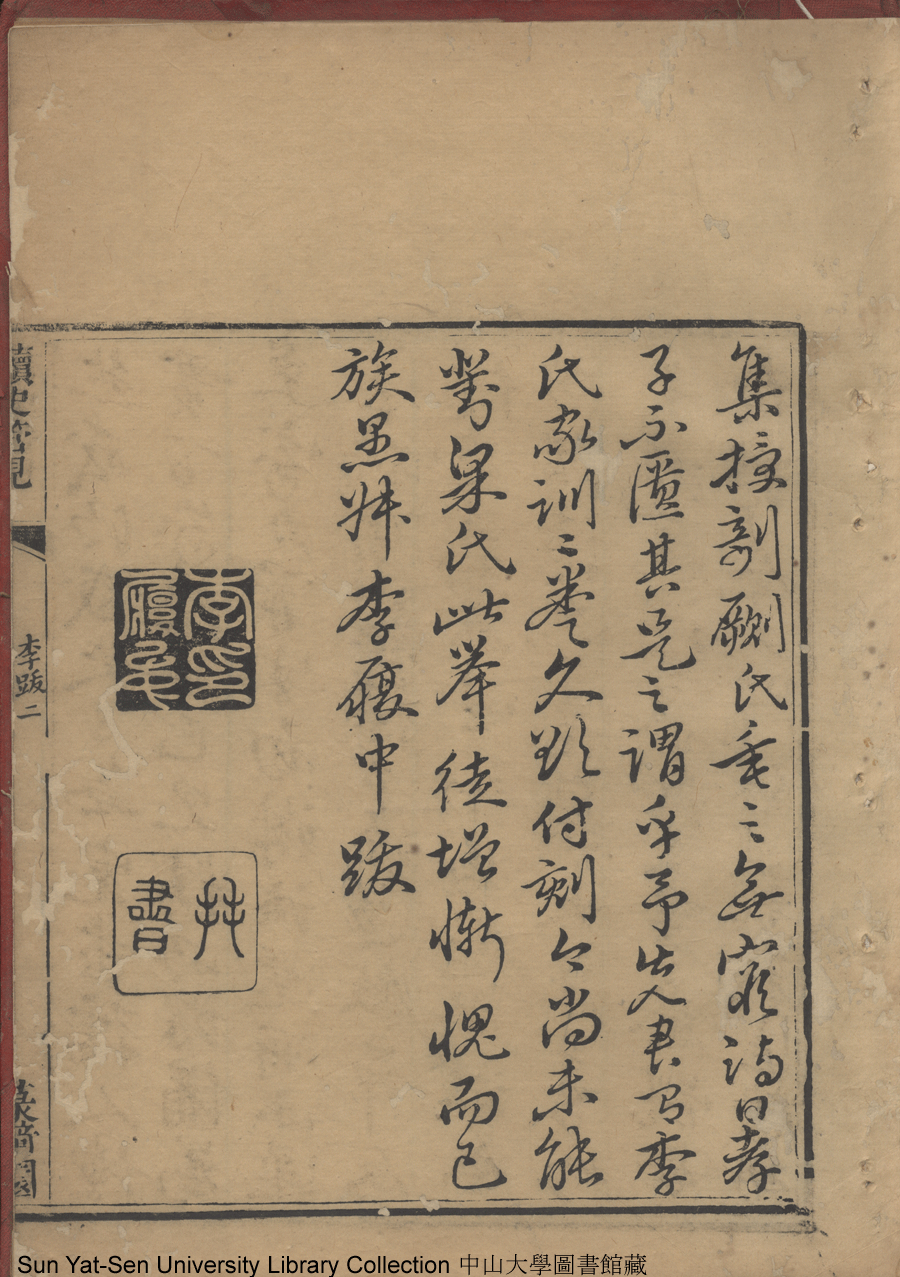 集授剞劂氏垂之無窮詩曰孝
子不匱其是之謂乎予先人著有李
氏家訓二卷久欲付刻今尚未能
對梁氏此舉徒增慚愧而已
族愚李履中跋
李印履中
拜書
讀史管見
李跋二
Sun Yat-Sen University Library Collection 中山大學圖書館藏